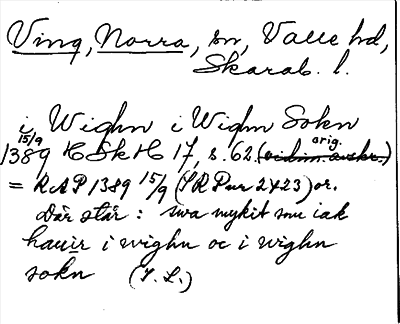 Ving, Norra, sn, Valle hd,
Skarab. l.
i Wighn i Wighn Sokn
15/9
1389 HSkH 17, s. 62. (vidim. avskr.) orig.
= RAP 1389 15/9 (SRPur 2423) or.
Där står: swa mykit smu iak
hauir i wighn oc i wighn
sokn (I. L.)